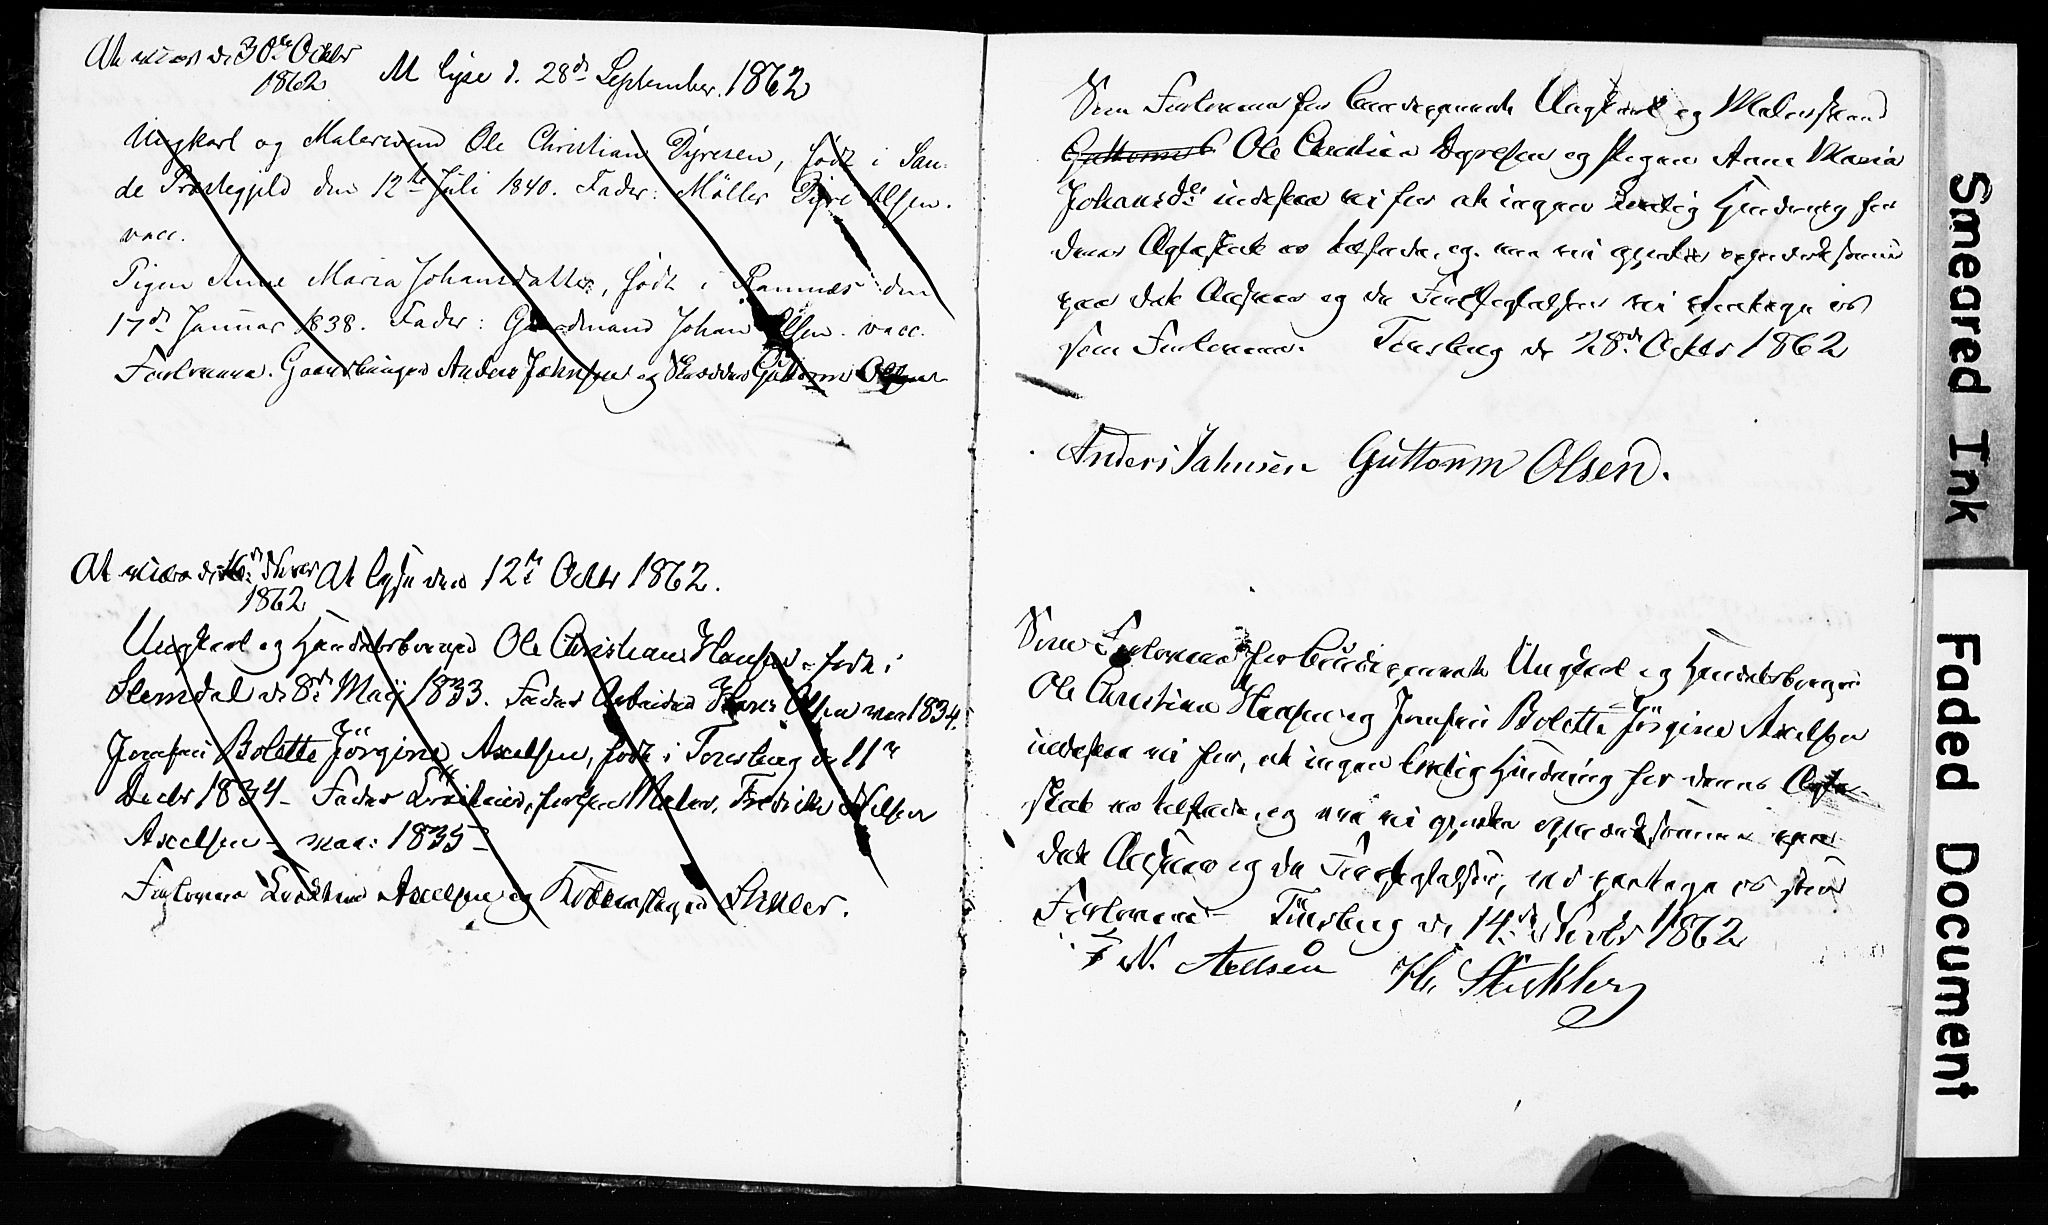 At vies d. 30te Octbr
1862
At lyse d. 28de September. 1862
Ungkarl og Malersvend Ole Christian Dyresen, født i San-
de Præstegjeld den 12te Juli 1840. Fader: Møller Dyre Olsen.
vacc.
Pigen Anne Maria Johansdatter, født i Ramnæs den
17de Januar 1838. Fader: Gaardmand Johan Olsen. vacc.
Forlovere. Gaardbruger Anders Jahnsen og Skrædder Guttorm Olsen
At vies d. 16de Novbr
1862
At lyse den 12te Octbr 1862.
Ungkarl og Handelsborger Ole Christian Hansen, født i
Slemdal d. 8de Maj 1833. Fader Arbeider Hans Olsen vac 1834.
Jomfru Bolette Jörgine Axelsen, født i Tønsberg d. 11te
Decbr 1834 - Fader Maler, Fredrik Nilsen
Axelsen - vac: 1835 -
Forlovere Axelsen og Stickler.
Som Forlovere for benævnte Ungkarl og Malersvend
Guttorms Ole Christian Dyresen og Pigen Anne Maria
Johansdr indestaa vi for at ingen lovlig Hindring for
deres Ægteskab er tilstæde, og ere vi gjorte opmærksomme
paa det Ansvar og de Forpligtelser vi paatage os
som Forlovere. Tønsberg d. 28de Octbr 1862
Anders Jahnsen Guttorm Olsen.
Som Forlovere for benævnte Ungkarl og Handelsborger
Ole Christian Hansen og Jomfru Bolette Jörgine Axelsen
indestaa vi for, at ingen lovlig Hindring for deres Ægte-
skab er tilstæde, og ere vi gjorte opmærksomme paa
det Ansvar og de Forpligtelser, vi paatage os som
Forlovere - Tönsberg d. 14de Novbr 1862
F N. Axelsen
Smeared Ink
Faded Document